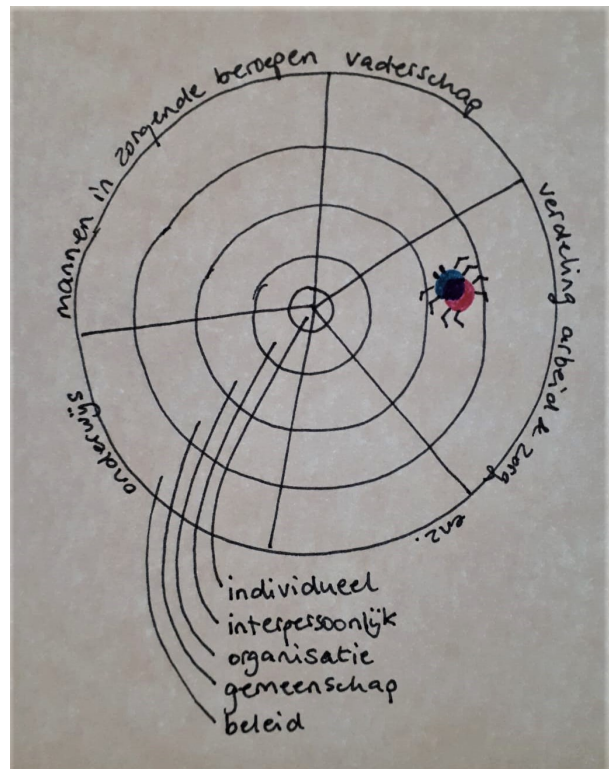 mannen in zorgende beroepen
vaderschap
verdeling arbeid & zorg
enz.
onderwijs
individueel
interpersoonlijk
organisatie
gemeenschap
beleid